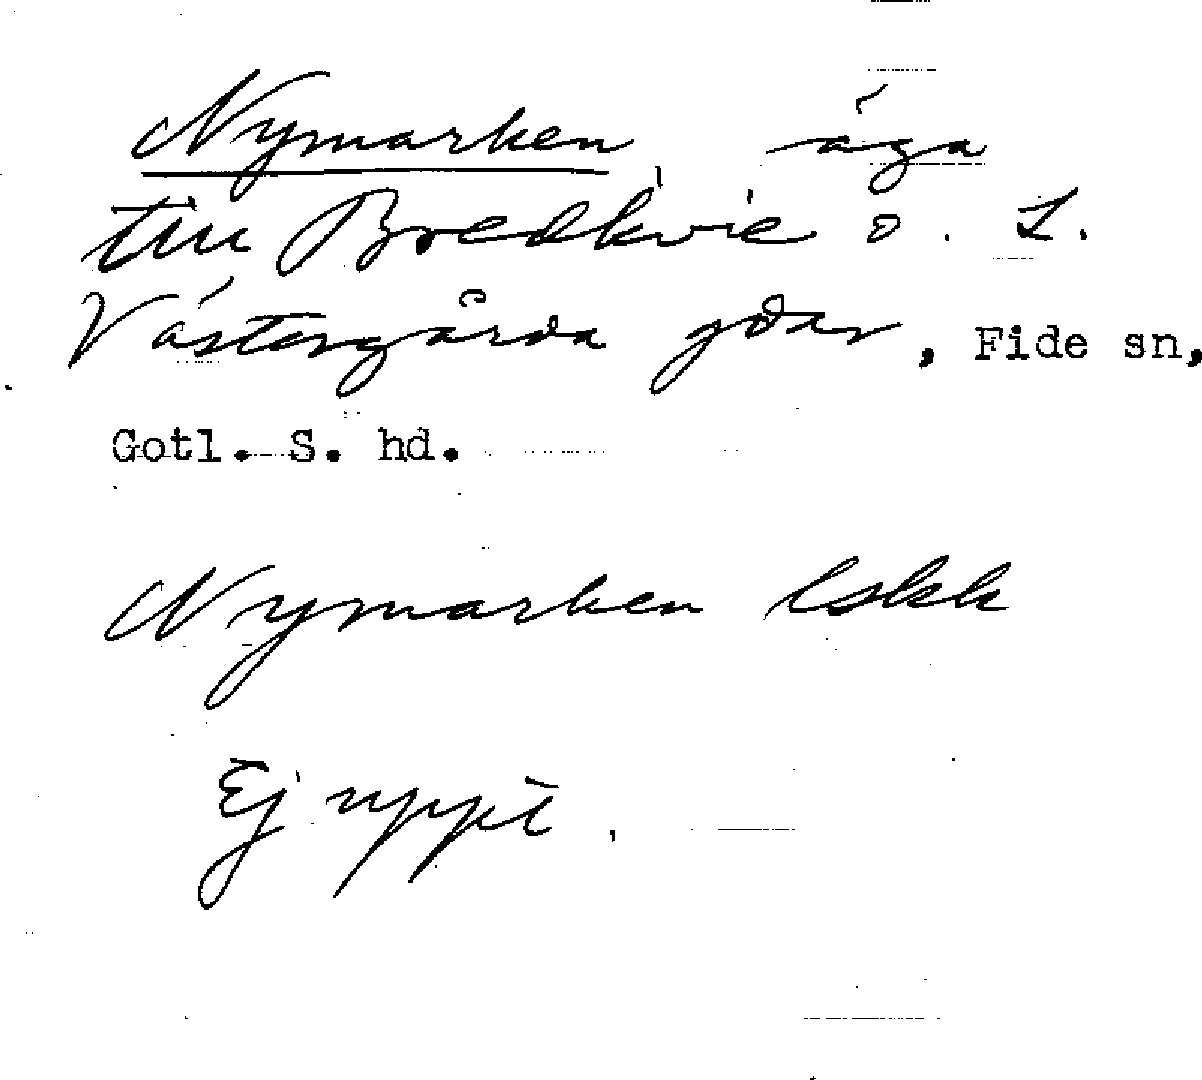 Nymarken, äga
till Bredkvie o. L.
Västergårda gdar, Fide sn,
Gotl. S. hd.
Nymarken lskk
Ej uppt.